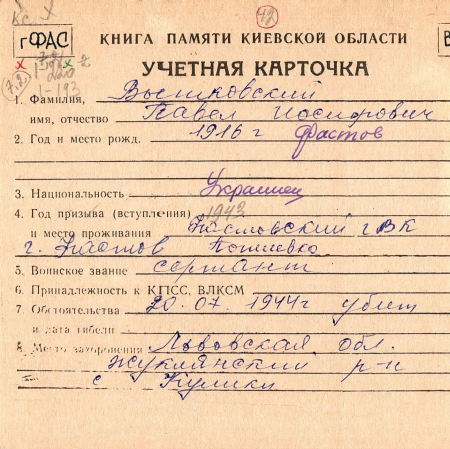 42
гФАС
КНИГА ПАМЯТИ КИЕВСКОЙ ОБЛАСТИ
В
УЧЕТНАЯ КАРТОЧКА
1. Фамилия, Вытковский
имя, отчество Павел Иосифович
2. Год и место рожд. 1916 г Фастов
3. Национальность Украинец
4. Год призыва (вступления) 1943
и место проживания Фастовский гВК
г. Фастов
5. Воинское звание сержант
6. Принадлежность к КПСС, ВЛКСМ
7. Обстоятельства 20.07.1944г убит
и дата гибели
8. Место захоронения Львовская обл.
р-н
с Кулики